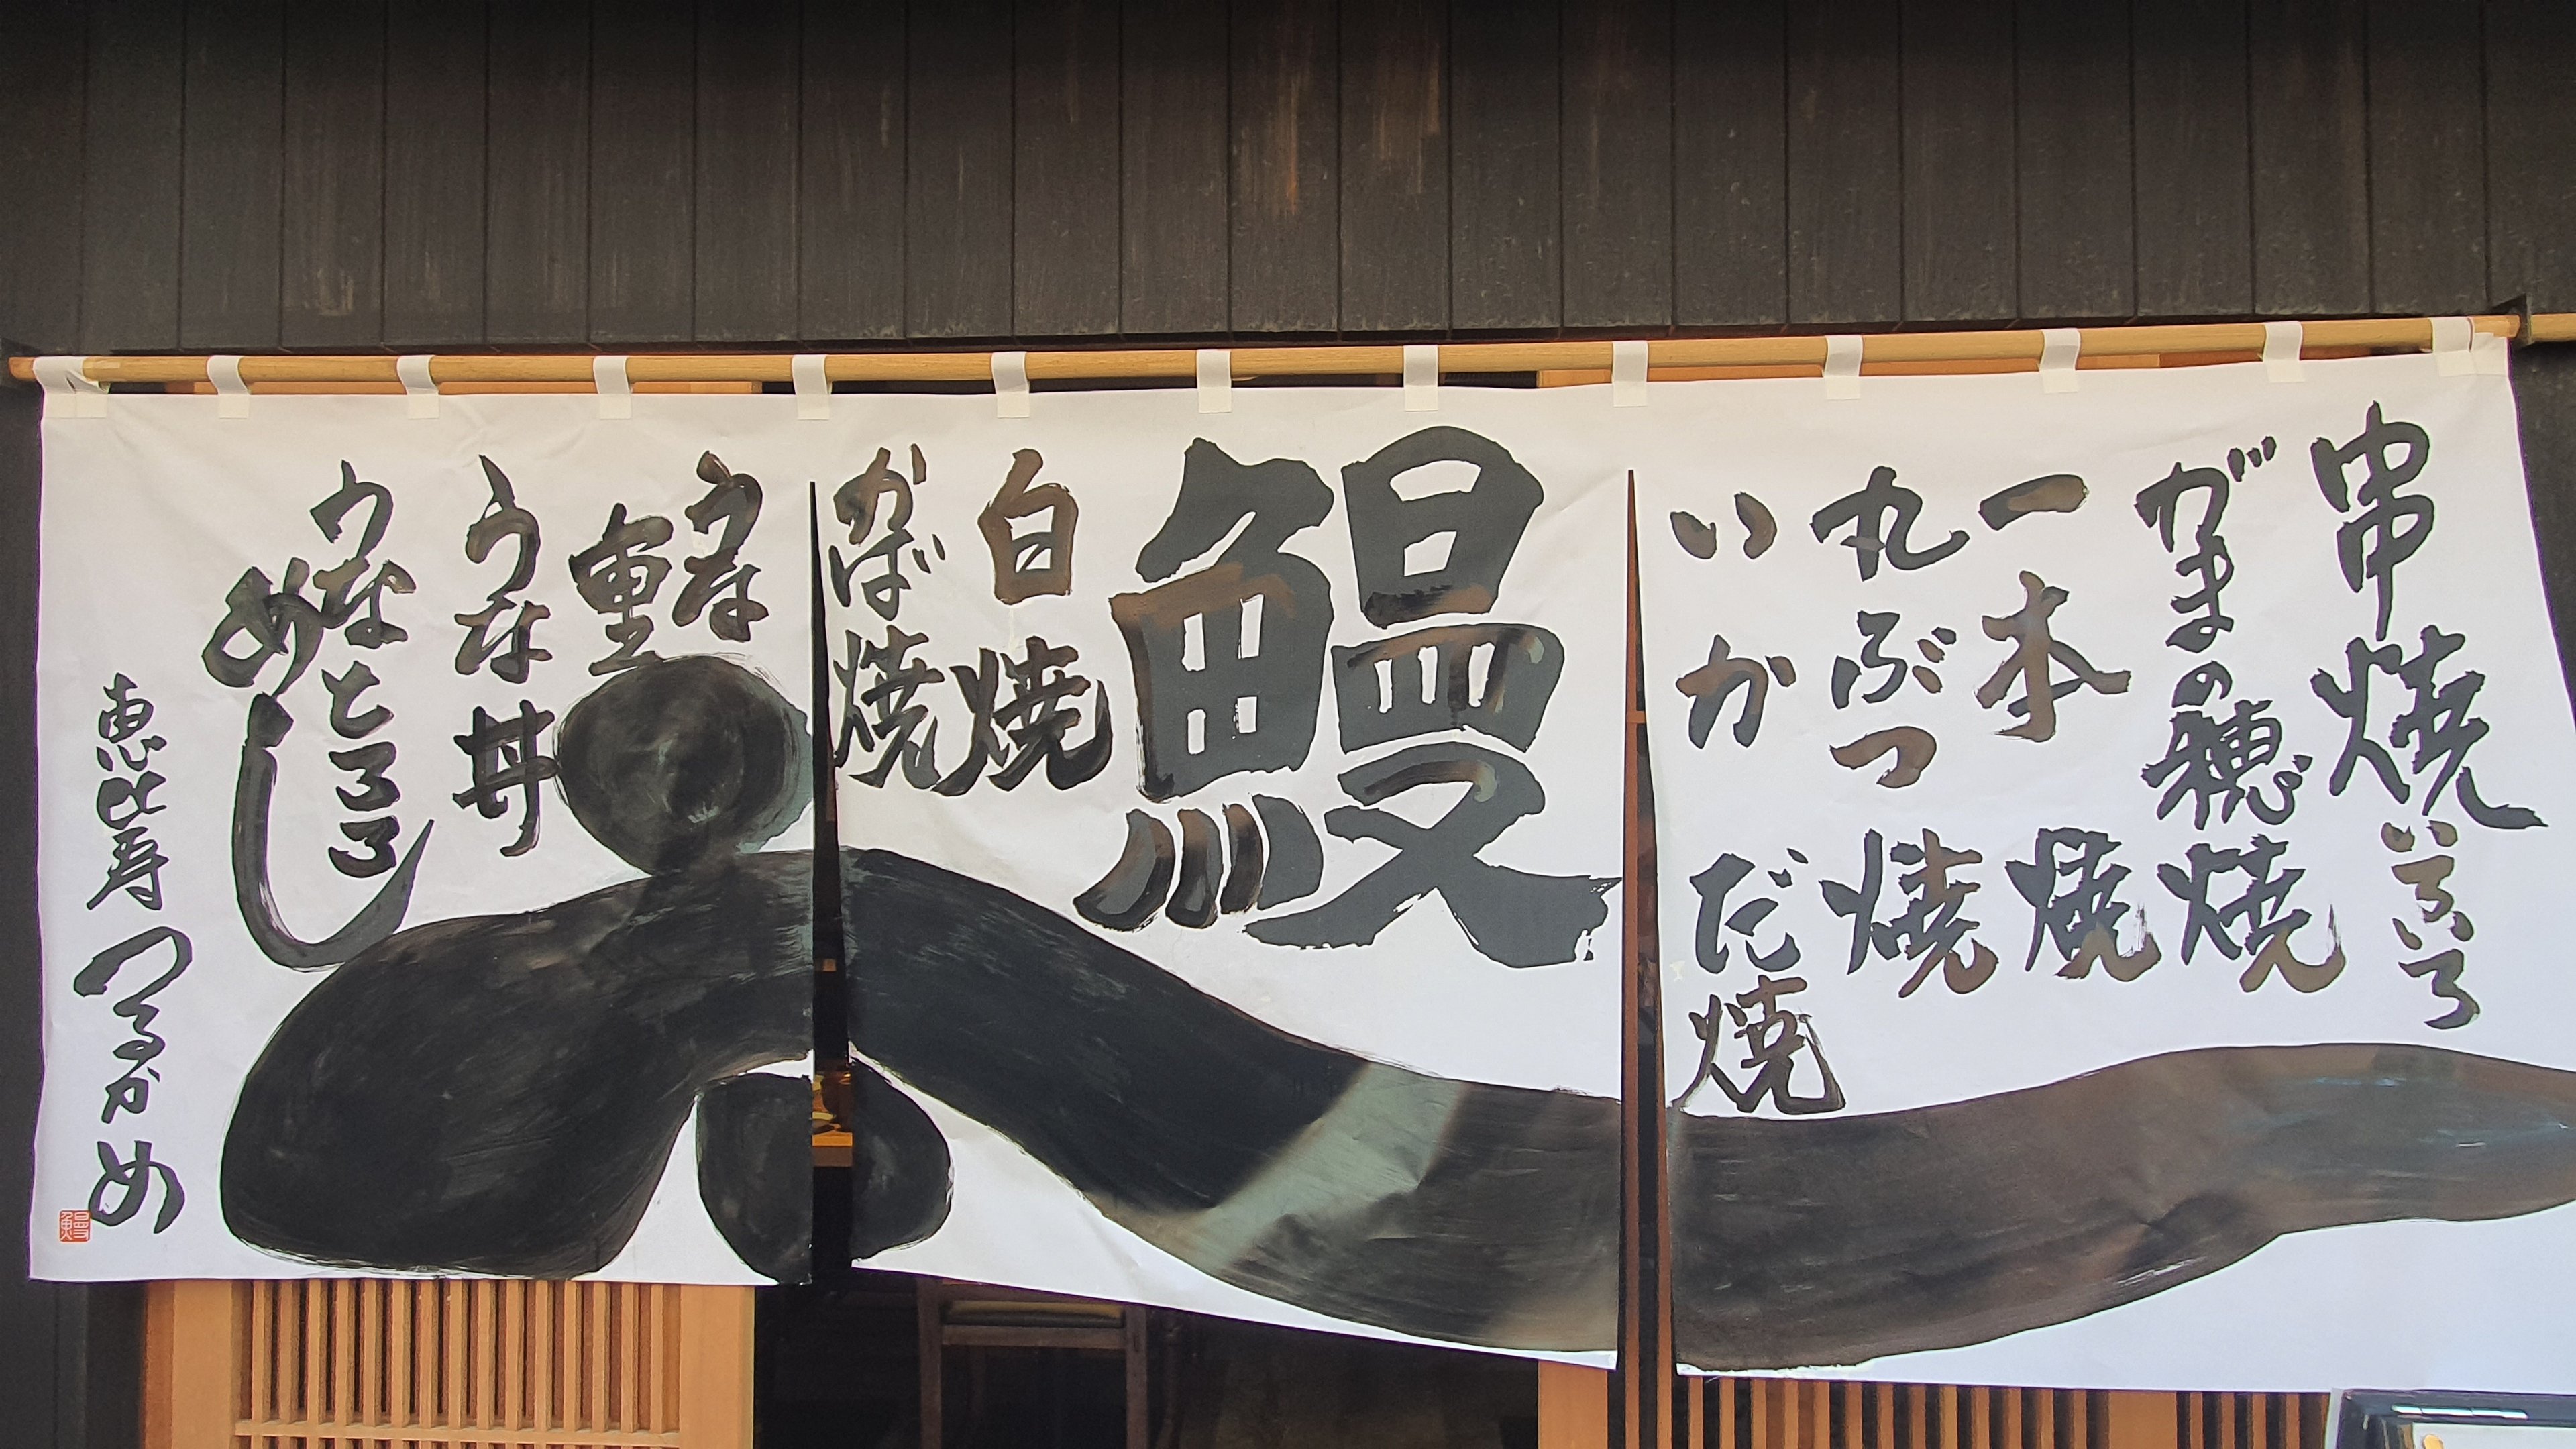 串焼いろいろ
がまの穂焼
一本焼
丸ぶつ焼
いかだ焼
鰻
白焼
かば焼
うな重
うな丼
うなとろろ
めし
恵比寿つるかめ
鰻